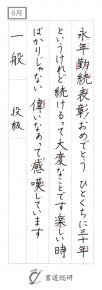 6月
永年勤続表彰おめでとう ひとくちに三十年
というけれど続けるって大変なことです楽しい時
ばかりじゃない 偉いなあって感嘆しています
一般 段級
書道総研